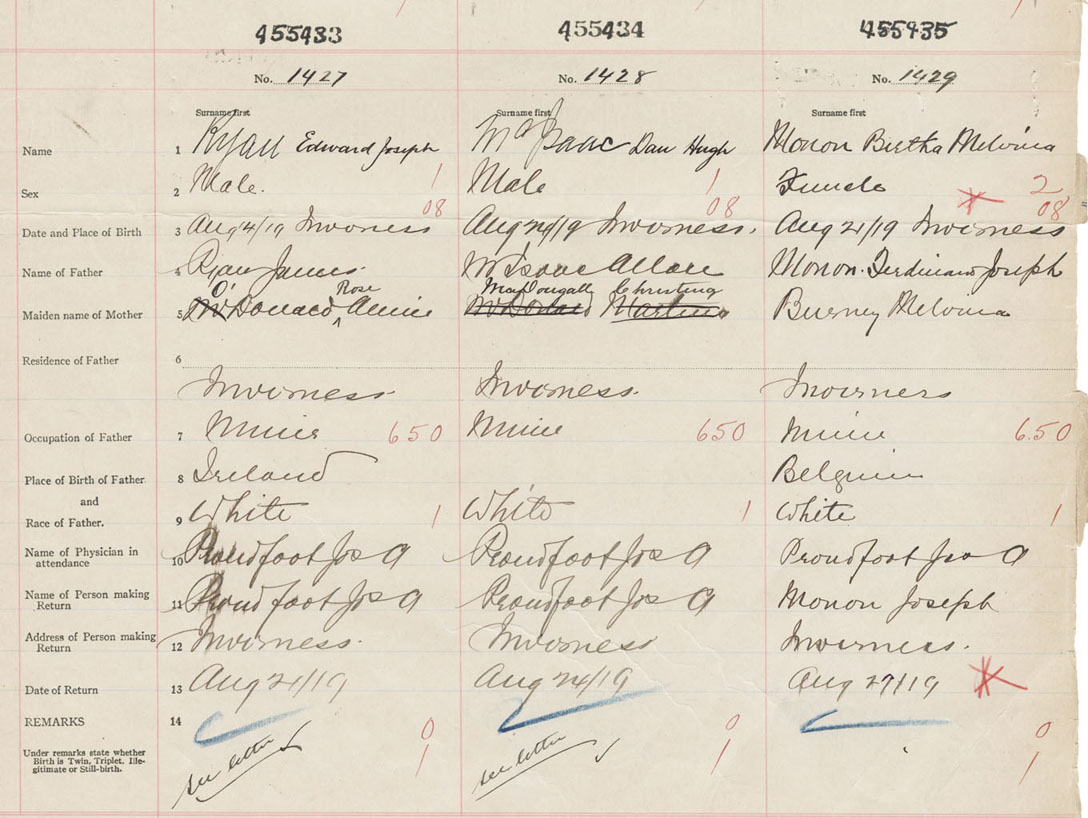 455433 455434 455435
No. 1427 No. 1428 No. 1429
Surname first Surname first Surname first
Name 1 Ryan Edward Joseph McIsaac Dan Hugh Monon Bertha Melvina
Sex 2 Male. 1 Male 1 Female 2
08 08 08
Date and Place of Birth 3 Aug 4/19 Inverness Aug 20/19 Inverness. Aug 21/19 Inverness
Name of Father 4 Ryan James. McIsaac Allan Monon. Ferdinand Joseph
O' Rose MacDougall Christina
Maiden name of Mother 5 Mc Donald Annie McDonald Martina Burney Melvina
Residence of Father 6
Inverness. Inverness. Inverness
Occupation of Father 7 Miner 650 Miner 650 Miner 6.50
Place of Birth of Father 8 Ireland Belgium
and
Race of Father. 9 White 1 White 1 White 1
Name of Physician in attendance 10 Proudfoot Jos A Proudfoot Jos A Proudfoot Jas A
Name of Person making Return 11 Proudfoot Jos A Proudfoot Jos A Monon Joseph
Address of Person making Return 12 Inverness. Inverness Inverness.
Date of Return 13 Aug 21/19 Aug 24/19 Aug 27/19
REMARKS 14
0 0 0
Under remarks state whether
Birth is Twin, Triplet, Ille-
gitimate or Still-birth.
see letter 1 see letter 1 1